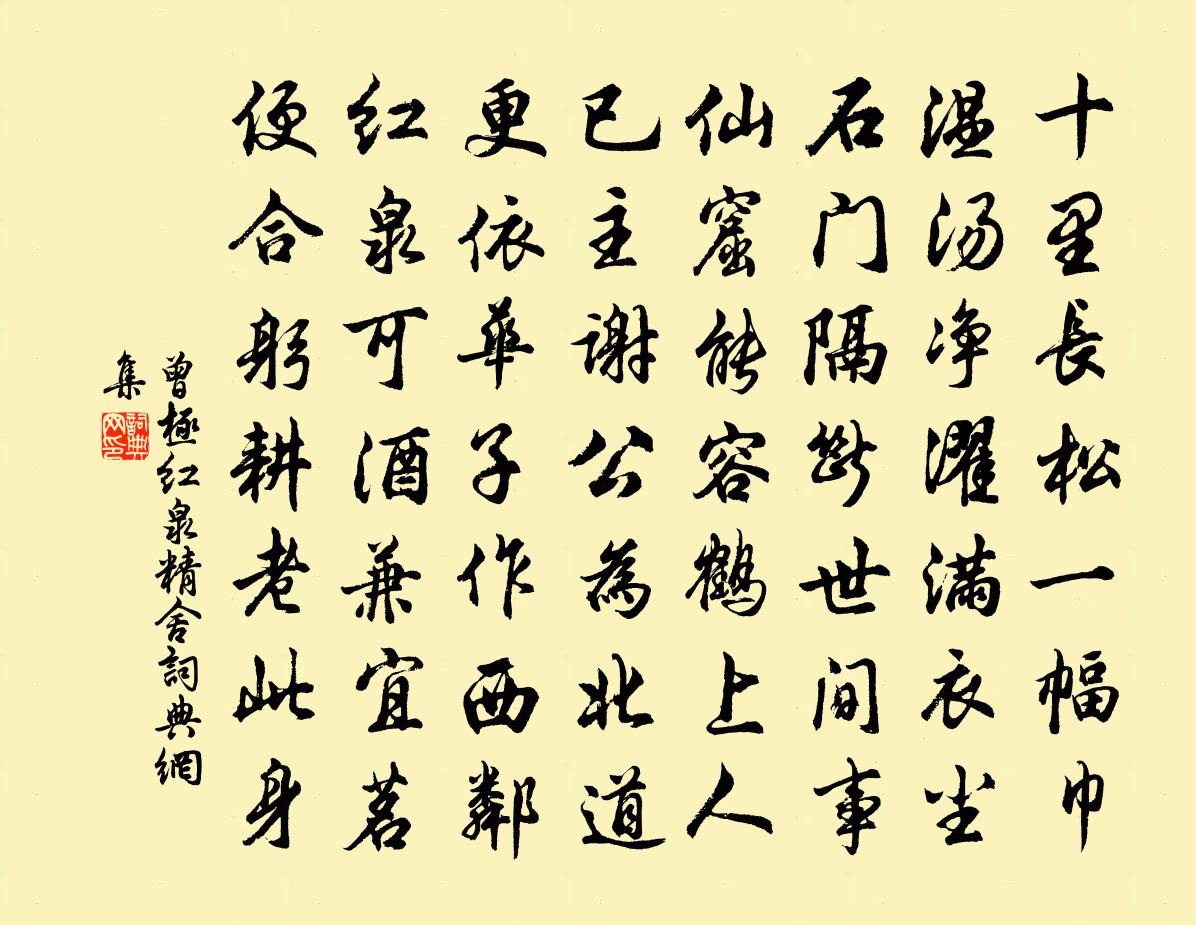 十里長松一幅巾
温汤净濯满衣尘
石门隔断世间事
仙窟能容鹤上人
已主谢公為北道
更依華子作西鄰
红泉可酒兼宜茗
便合躬耕老此身
曾極红泉精舍詞典網
集
詞典网印